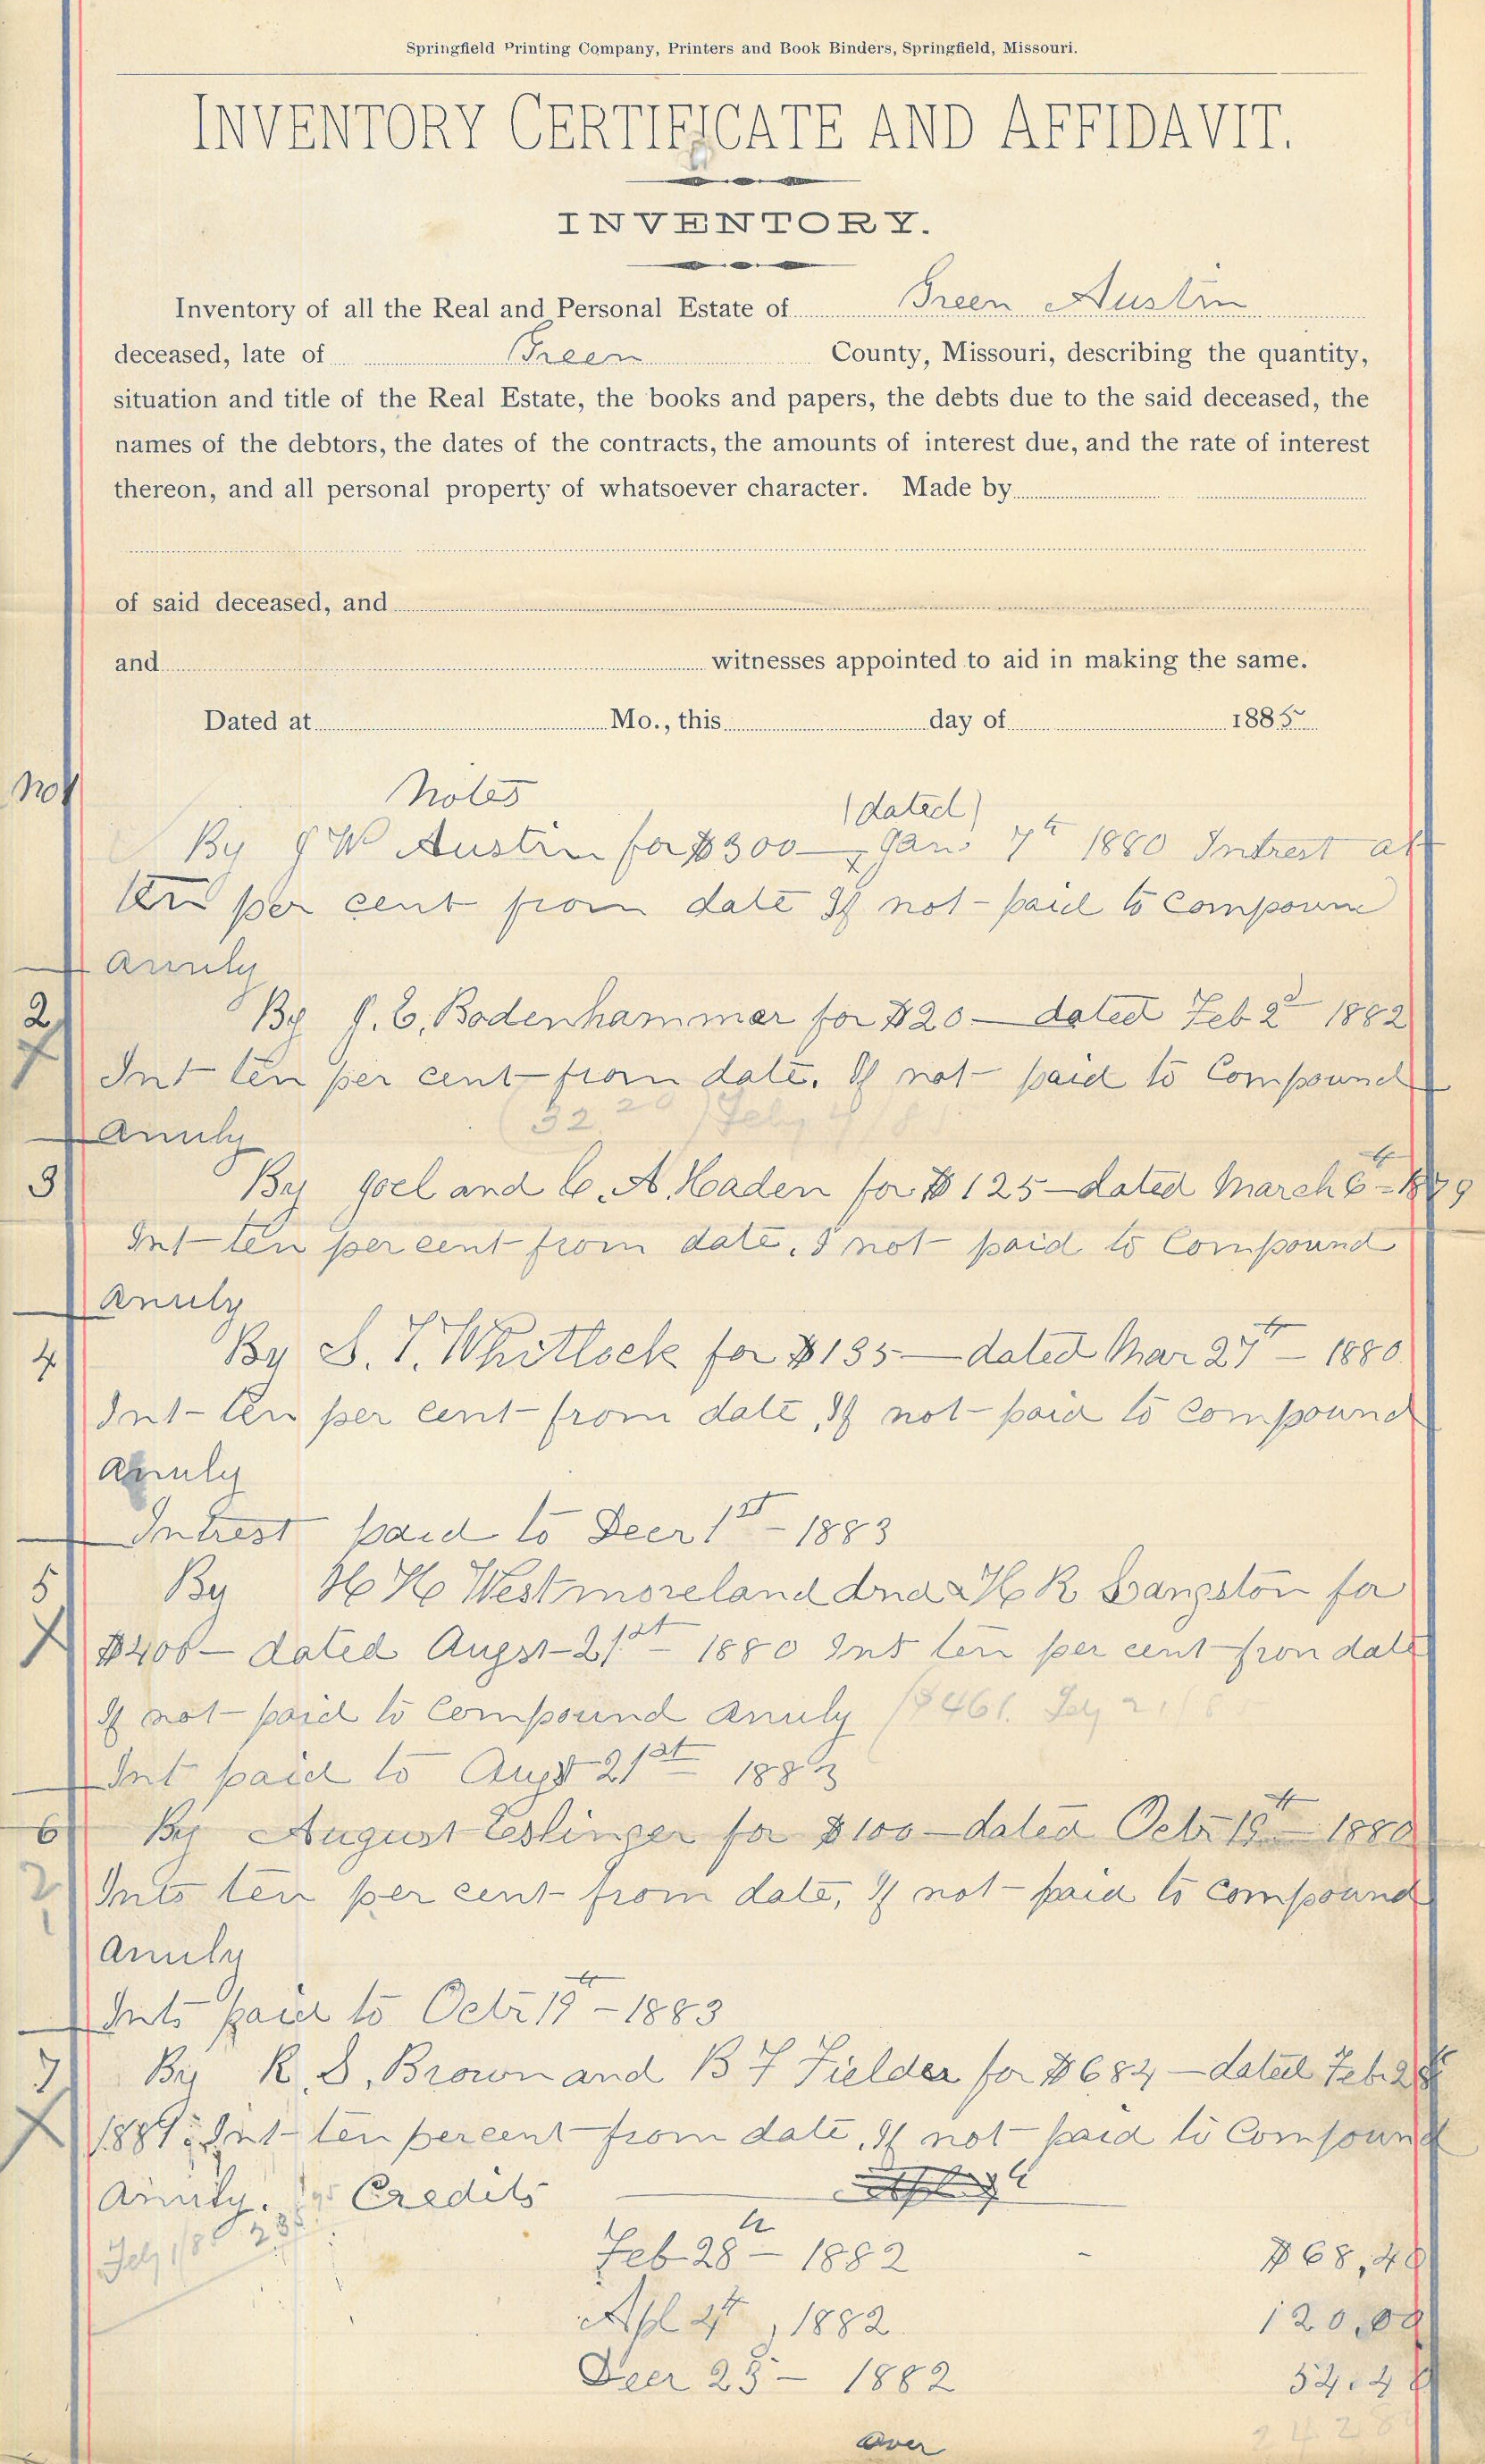 Springfield Printing Company, Printers and Book Binders, Springfield, Missouri.
INVENTORY CERTIFICATE AND AFFIDAVIT.
INVENTORY.
Inventory of all the Real and Personal Estate of Green Austin
deceased, late of Green County, Missouri, describing the quantity,
situation and title of the Real Estate, the books and papers, the debts due to the said deceased, the
names of the debtors, the dates of the contracts, the amounts of interest due, and the rate of interest
thereon, and all personal property of whatsoever character. Made by
of said deceased, and
and witnesses appointed to aid in making the same.
Dated at Mo., this day of 1885
No 1 Notes
(dated)
By J W Austin for $300— Jan 7th 1880 Intrest at
ten per cent from date If not paid to compound
Annuly
2 By J. E. Bodenhammer for $20— dated Feb 2d 1882
X Int ten per cent from date. If not paid to Compound
Annuly (32.20) Feby 4/8
3 By Joel and C. A. Haden for $125— dated March 6th 1879
Int ten per cent from date, I not paid to Compound
Anuly
4 By S. T. Whitlock for $135— dated Mar 27th — 1880
Int ten per cent from date, If not paid to compound
Anuly
Intrest paid to Decr 1st — 1883
5 By H H Westmoreland and H R Langston for
X $400— dated Augst 21st 1880 Int ten per cent fron date
If not paid to Compound Anuly ($461.
Int paid to Augst 21st 1883
6 By August Eslinger for $100— dated Octr 19th — 1880
2 Ints ten per cent from date, If not paid to compound
1 Annuly
Ints paid to Octr 19th — 1883
7 By R. S. Brown and B F Fielder for $684— dated Feb. 28
X 1881. Int ten percent from date. If not paid to Compound
Annuly. Credits
Feb 28th — 1882 - $68,40
Apl 4th, 1882 120,00
Decr 25 — 1882 54.40
Over